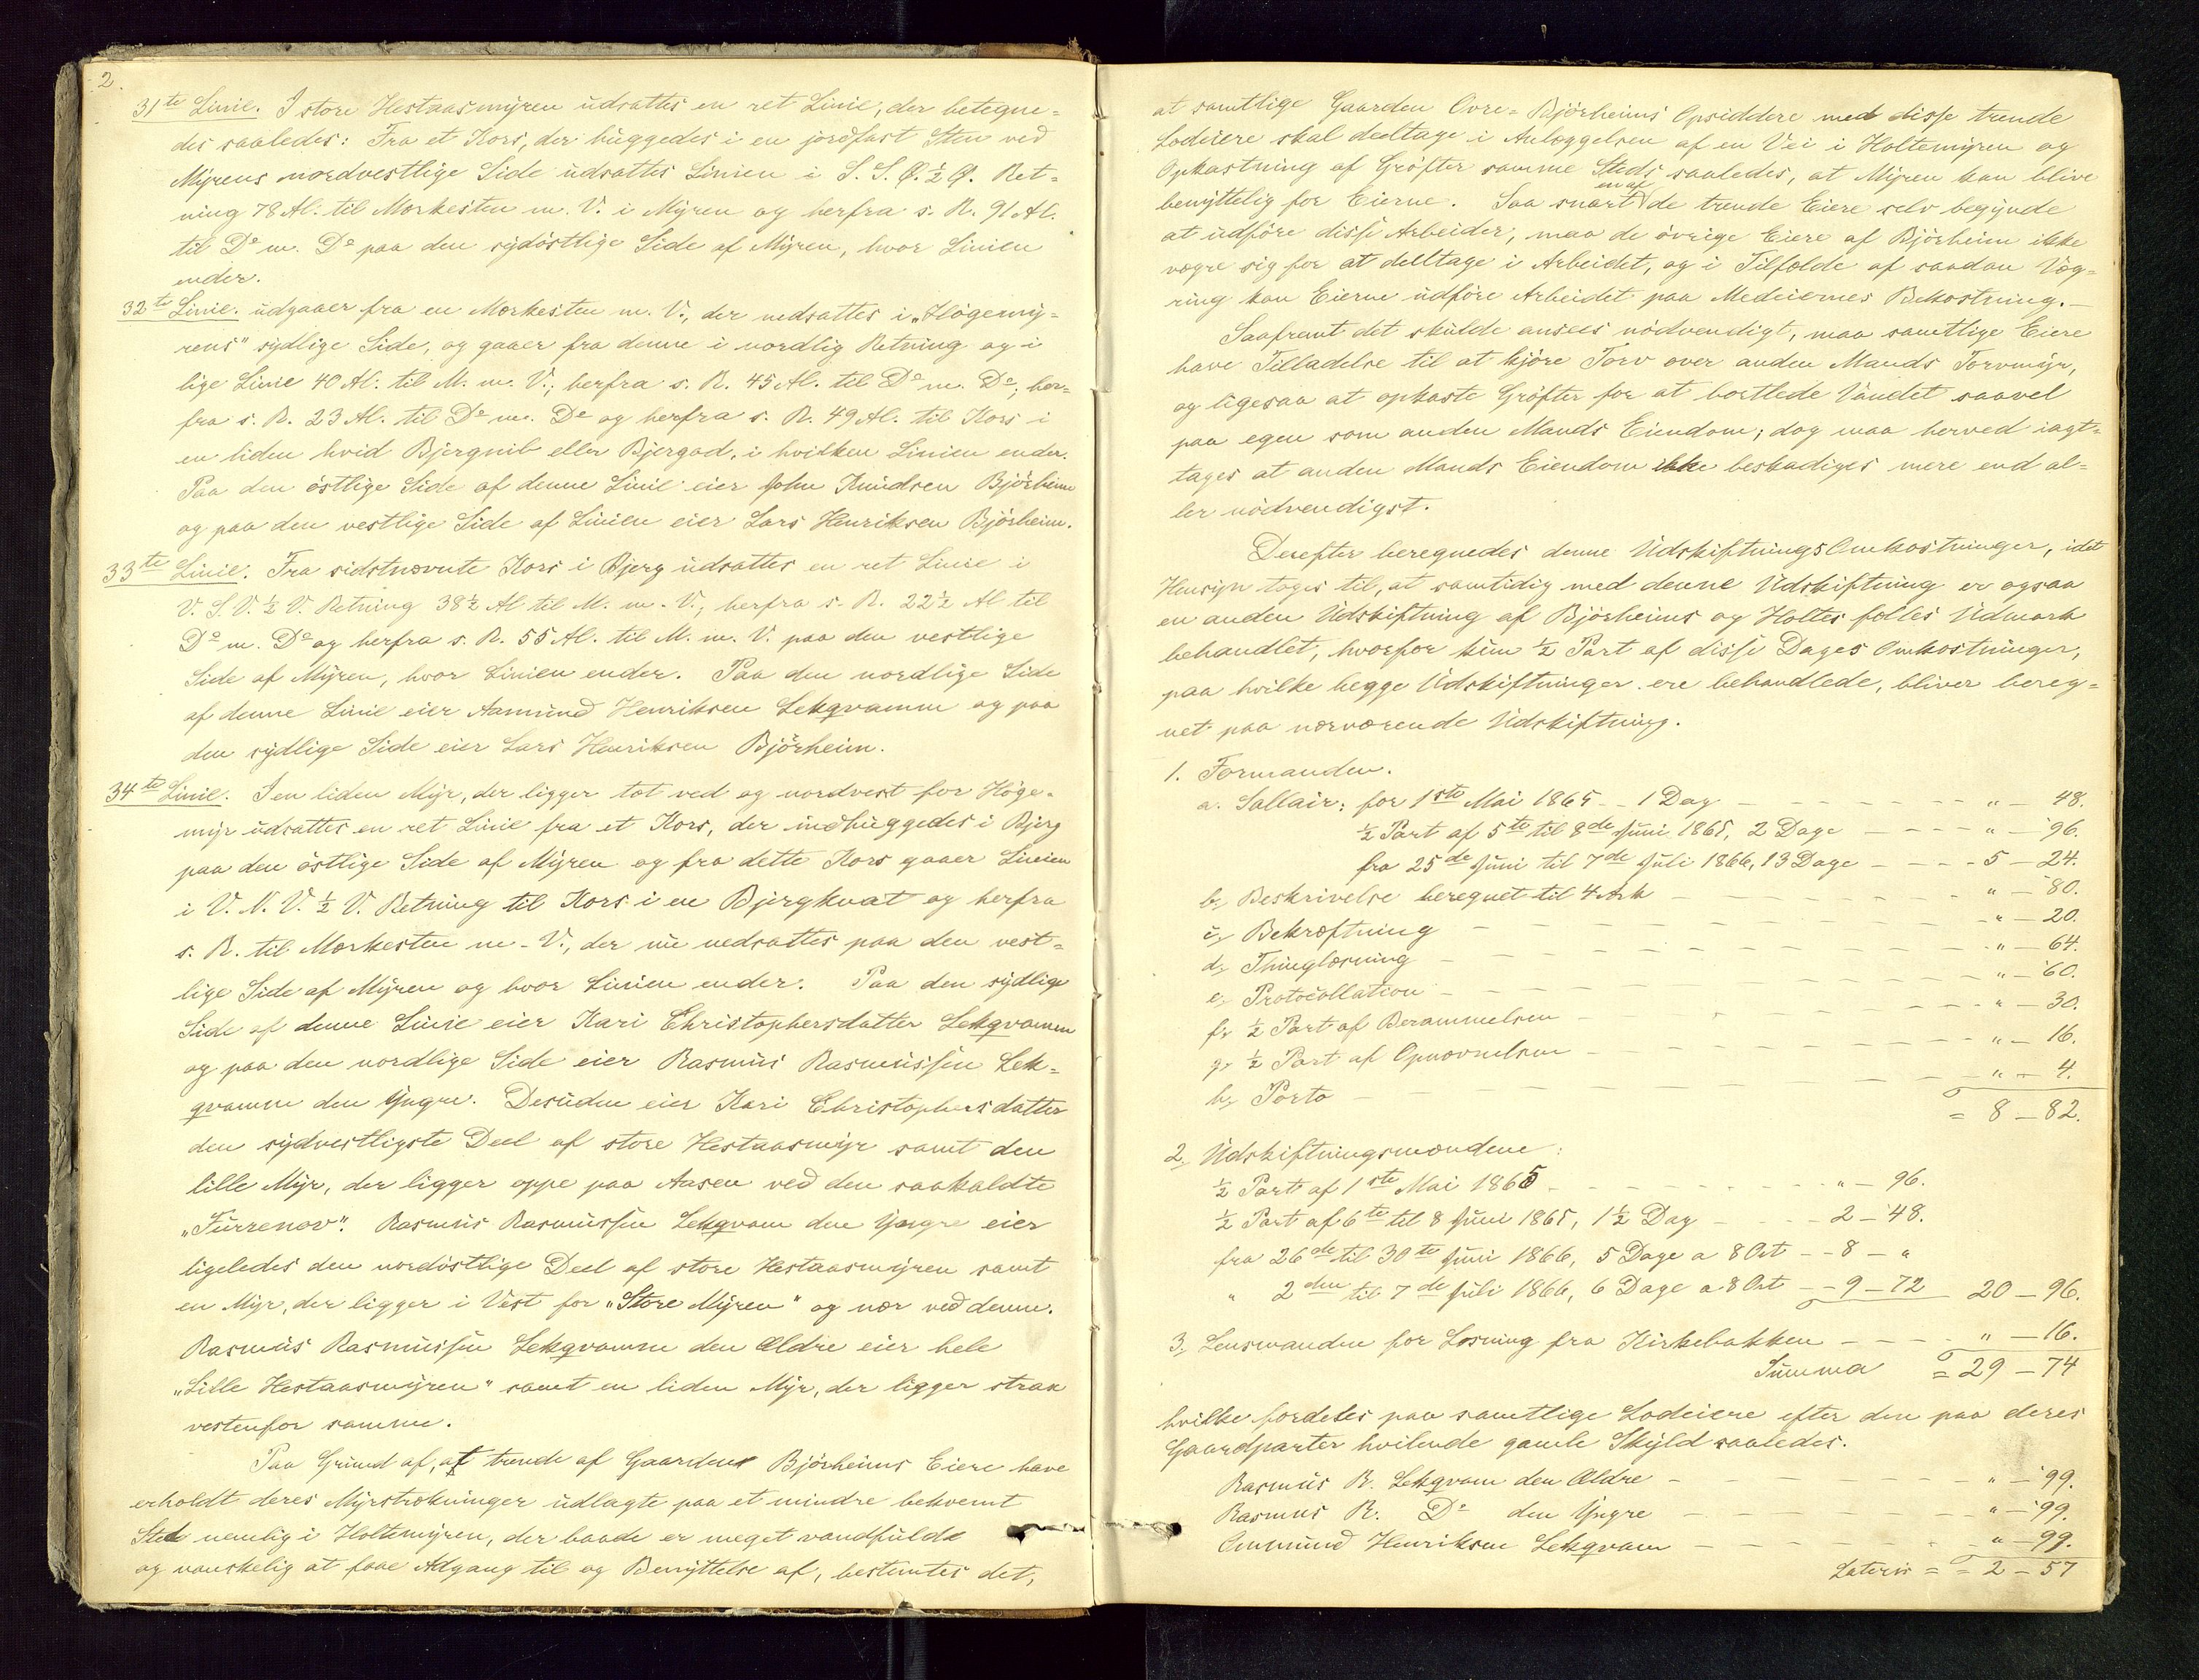 2.
31te Linie. I store Hestaasmÿren udsattes en ret Linie, der betegne-
des saaledes: Fra et Kors, der huggedes i en jordfast Sten ved
Mÿrens nordvestlige Side udsattes Linien i S. S. Ø. ½ Ø. Ret-
ning 78 Al. til Mærkesten m. V. i Mÿren og herfra s. R. 91 Al.
til Do m. Do paa den sydöstlige Side af Mÿren, hvor Linien
ender.
32te Linie. udgaaer fra en Mærkesten m. V., der nedsattes i „Högemÿ-
rens" sÿdlige Side, og gaaer fra denne i nordlig Retning og i
lige Linie 40 Al. til M. m. V.; herfra s. R. 45 Al. til Do m. Do; her-
fra s. R. 23 Al. til Do m. Do og herfra s. R. 49 Al. til Kors i
en liden hvid Bjergnib eller Bjergod, i hvilken Linien ender.
Paa den östlige Side af denne Linie eier John Knudsen Björheim
og paa den vestlige Side af Linien eier Lars Henriksen Björheim.
33te Linie. Fra sidstnævnte Kors i Bjerg udsattes en ret Linie i
V. S. V. ½ V. Retning 38½ Al til M. m. V.; herfra s. R. 22½ Al til
Do m. Do og herfra s. R. 55 Al. til M. m. V. paa den vestlige
Side af Mÿren, hvor Linien ender. Paa den nordlige Side
af denne Linie eier Aamund Henriksen Lekqvamm og paa
den sydlige Side eier Lars Henriksen Björheim.
34te Linie. I en liden Mÿr, der ligger tæt ved og nordvest for Höge-
mÿr udsattes en ret Linie fra et Kors, der indhuggedes i Bjerg
paa den östlige Side af Mÿren og fra dette Kors gaaer Linien
i V. N. V. ½ V. Retning til Kors i en Bjergknat og herfra
s. R. til Mærkesten m. V., der nu nedsattes paa den vest-
lige Side af Mÿren og hvor Linien ender. Paa den sÿdlige
Side af denne Linie eier Kari Christophersdatter Lekqvamm
og paa den nordlige Side eier Rasmus Rasmussen Lek-
qvamm den Yngre. Desuden eier Kari Christophersdatter
den sÿdvestligste Deel af store Hestaasmÿr samt den
lille Mÿr, der ligger oppe paa Aasen ved den saakaldte
„Furrenov". Rasmus Rasmussen Lekqvam den Yngre eier
ligeledes den nordöstlige Deel af store Hestaasmÿren samt
en Mÿr, der ligger i Vest for „Store Mÿren" og nær ved denne.
Rasmus Rasmussen Lekqvamm den Ældre eier hele
„Lille Hestaasmÿren" samt en liden Mÿr, der ligger strax
vestenfor samme.
Paa Grund af, at trende af Gaardens Björheims Eiere have
erholdt deres Mÿrstrækninger udlagte paa et mindre bekvemt
Sted nemlig i Holtemÿren, der baade er meget vandfulde
og vanskelig at faae Adgang til og Benÿttelse af, bestemtes det,
at samtlige Gaarden Övre-Björheims Opsiddere med disse trende
Lodeiere skal deeltage i Anlæggelsen af en Vei i Holtemÿren og
Opkastning af Gröfter samme Steds saaledes, at Mÿren kan blive
benÿttelig for Eierne. Saa snart en af de trende Eiere selv begÿnde
at udföre disse Arbeider, maa de övrige Eiere af Björheim ikke
vægre sig for at deltage i Arbeidet, og i Tilfælde af saadan Væg-
ring kan Eierne udföre Arbeidet paa Medeiernes Bekostning.—
Saafremt det skulde ansees nödvendigt, maa samtlige Eiere
have Tilladelse til at kjöre Torv over anden Mands Torvmÿr,
og ligesaa at opkaste Gröfter for at bortlede Vandet saavel
paa egen som anden Mands Eiendom; dog maa herved iagt-
tages at anden Mands Eiendom ikke beskadiges mere end al-
ler nödvendigst.
Derefter beregnedes denne Udskiftnings Omkostninger, idet
Hensÿn toges til, at samtidig med denne Udskiftning er ogsaa
en anden Udskiftning af Björheims og Holtes fælles Udmark
behandlet, hvorfor kun ½ Part af disse Dages Omkostninger,
paa hvilke begge Udskiftninger ere behandlede, bliver bereg-
net paa nærværende Udskiftning.
1. Formanden.
a. Sallair: for 1ste Mai 1865 - - 1 Dag - - - - " — 48.
½ Part af 5te til 8de Juni 1865, 2 Dage - - - - " — 96.
fra 25de Juni til 7de Juli 1866, 13 Dage - - - - 5 — 24.
b, Beskrivelse beregnet til 4 Ark - - - - " — 80.
c, Bekræftning - - - - " — 20.
d, Thinglæsning - - - - " — 64.
e, Protocollation - - - - " — 60.
f, ½ Part af Berammelsen - - - - " — 30.
g, ½ Part af Opnævnelsen - - - - " — 16.
h, Porto - - - - " — 4.
= 8 — 82.
2, Udskiftningsmændene:
½ Part af 1ste Mai 1865 - - - - " — 96.
½ Part af 6te til 8 Juni 1865, 1½ Dag - - - - 2 — 48.
fra 26de til 30te Juni 1866, 5 Dage a 8 Ort - - 8 — "
" 2den til 7de Juli 1866, 6 Dage a 8 Ort - - 9 — 72 20 — 96.
3, Lensmanden for Læsning fra Kirkebakken - - - - " — 16.
Summa = 29 — 74
hvilke fordeles paa samtlige Lodeiere efter den paa deres
Gaardparter hvilende gamle Skÿld saaledes.
Rasmus R. Lekqvam den Ældre - - - - " — 99.
Rasmus R. Do den Yngre - - - - " — 99.
Ommund Henriksen Lekqvam - - - - " — 99.
Lateris = = 2 — 57